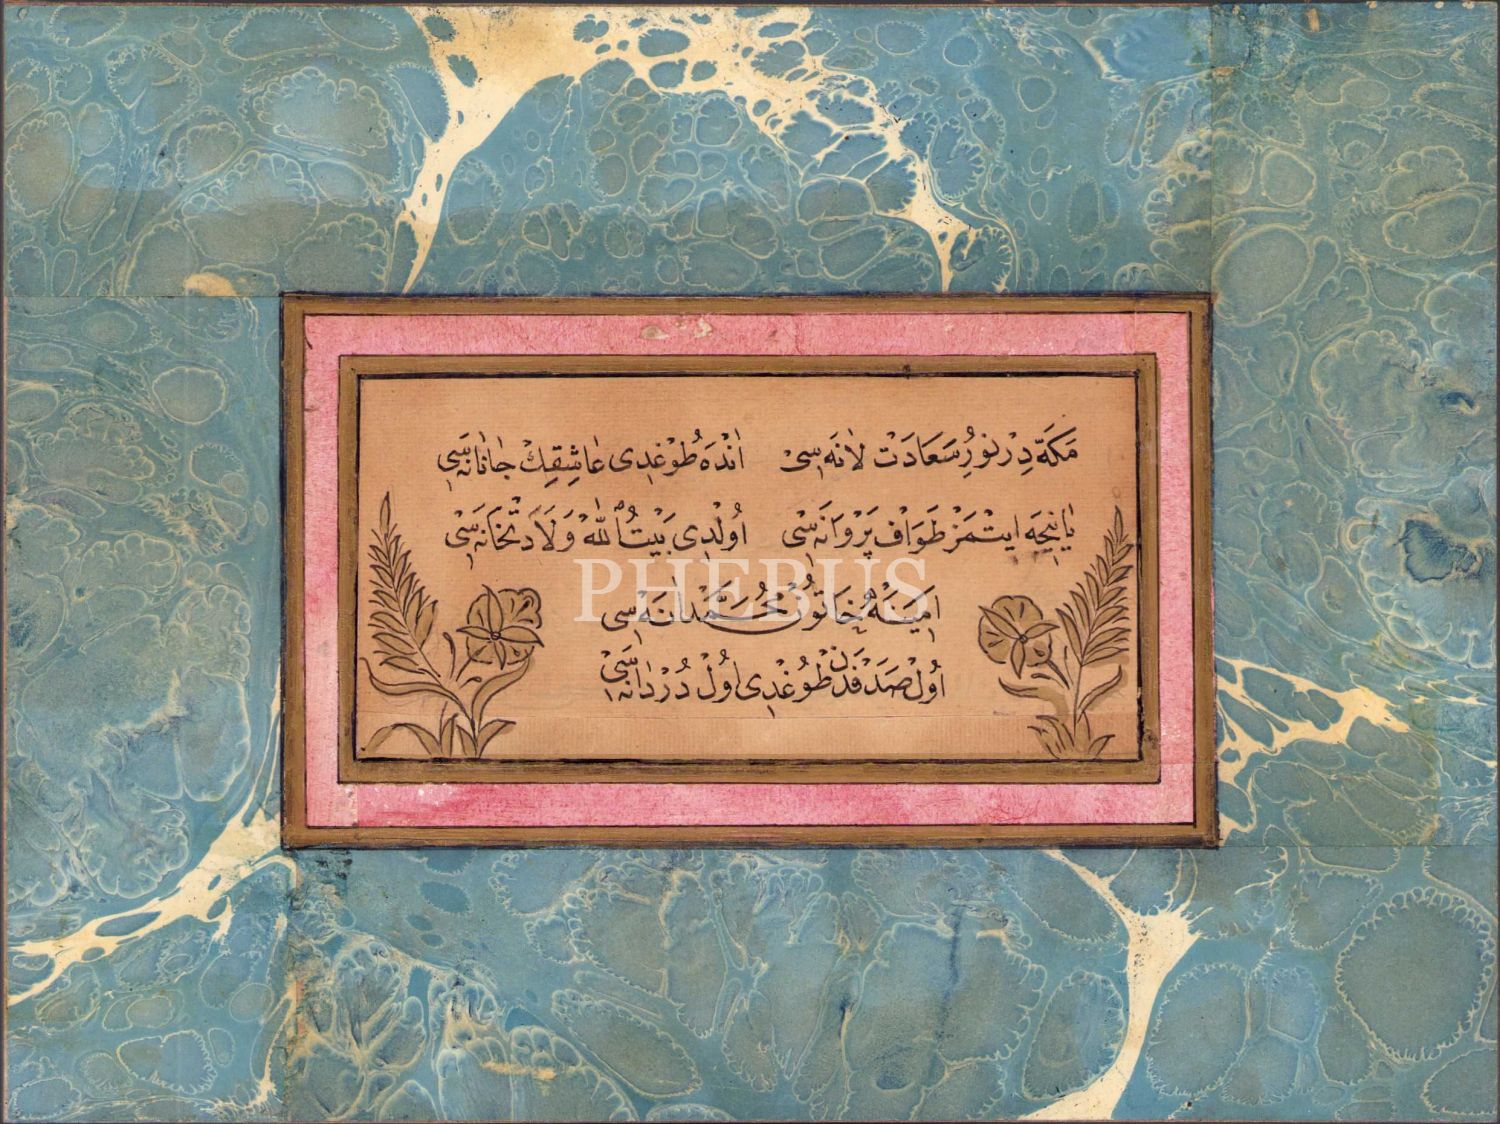 مَكَّه دِرْ نُورِ سَعَادَتْ لَانَه سِی اَنْدَه طُوغْدِی عَاشِقِكْ جَانَانَه سِی
يَا نِيجَه ايتْمَزْ طَوَافْ پَرْوَانَه سِی اُولْدِی بَيْتُ اللّٰه وَلَادَتْخَانَه سِی
PHEBUS
اٰمِينَه خَاتُونْ مُحَمَّدْ اٰنَه سِی
اُولْ صَدَفْدَنْ طُوغْدِی اُولْ دُرْدَانَه سِی